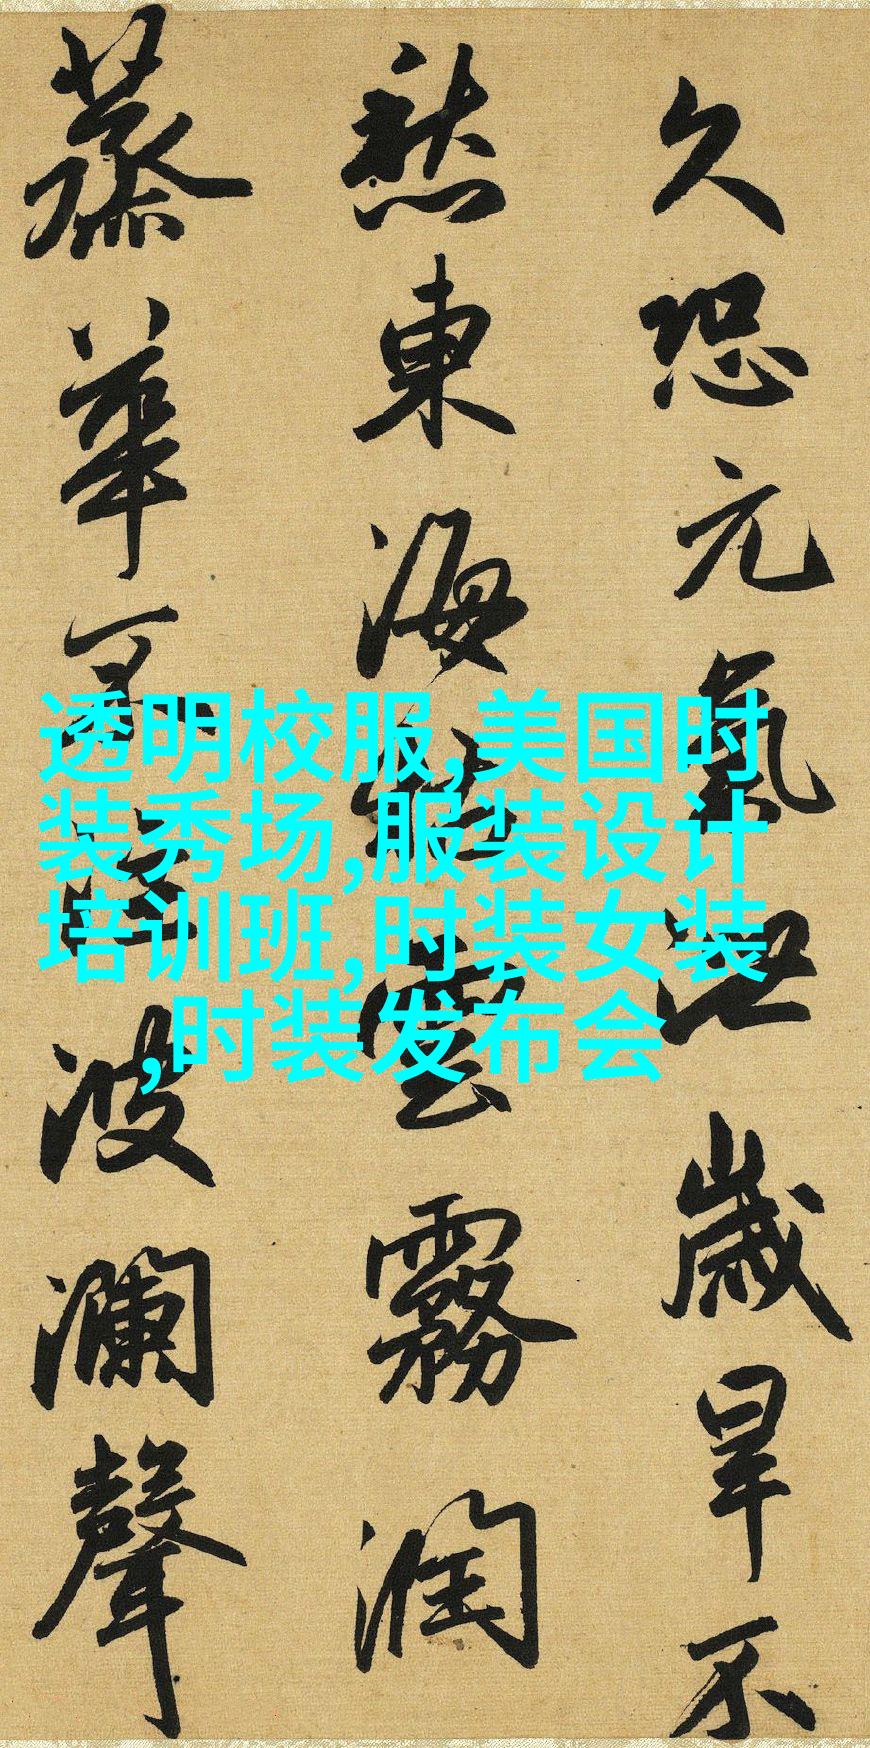 久恐元氣泄歲旱不
愁東海雲霧潤
蒸華波瀾聲
透明校服,美国时
装秀场,服装设计
培训班,时装女装
,时装发布会